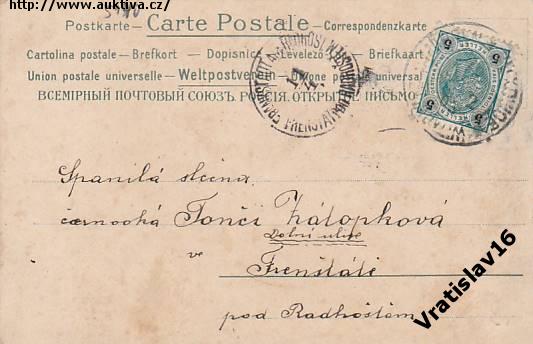 http://www.auktiva.cz/
Postkarte - Carte Postale - Correspondenzkarte
Cartolina postale - Brefkort - Dopisnice - Levelező - Briefkaart
Union postale universelle - Weltpostverein - universal
ВСЕМІРНЫЙ ПОЧТОВЫЙ СОЮЗЪ. РОССІЯ. ОТКРЫТОЕ ПИСЬМО
5 5
5 5
Spanilá slečna
černooká Tonči Zátopková
Dolní ulice
ve
Frenštátě
pod Radhoštěm
Vratislav16